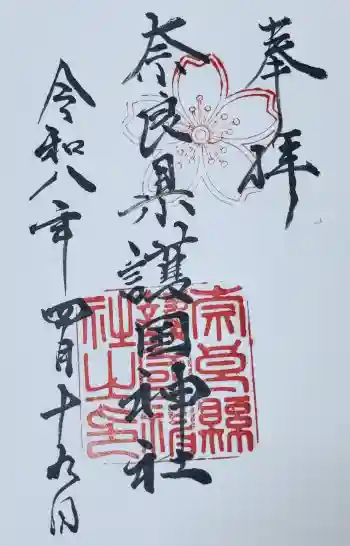 奉拝
奈良県護国神社
令和八年四月十九日
奈良縣護國神社之印